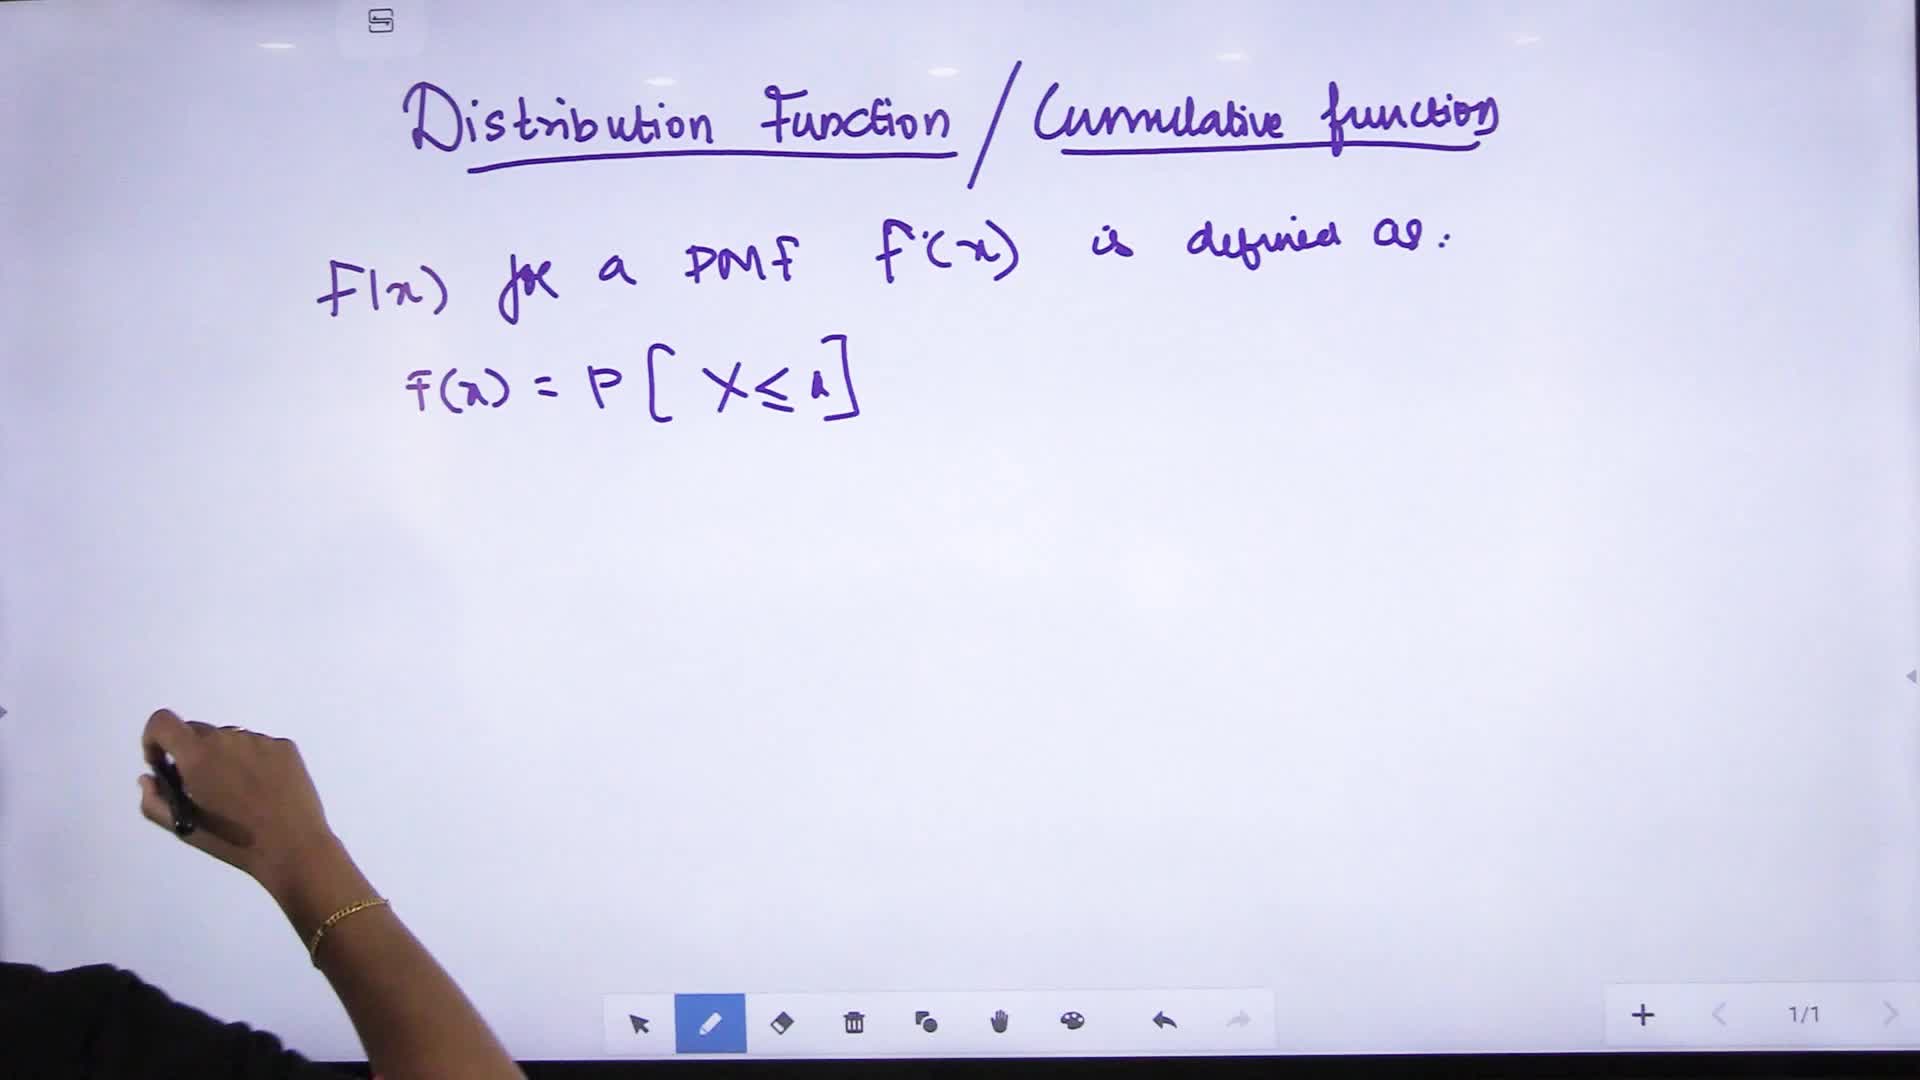 Distribution Function / Cumulative function
F(x) for a PMF F(x) is defined as:
F(x) = P [ X ≤ x ]
1/1